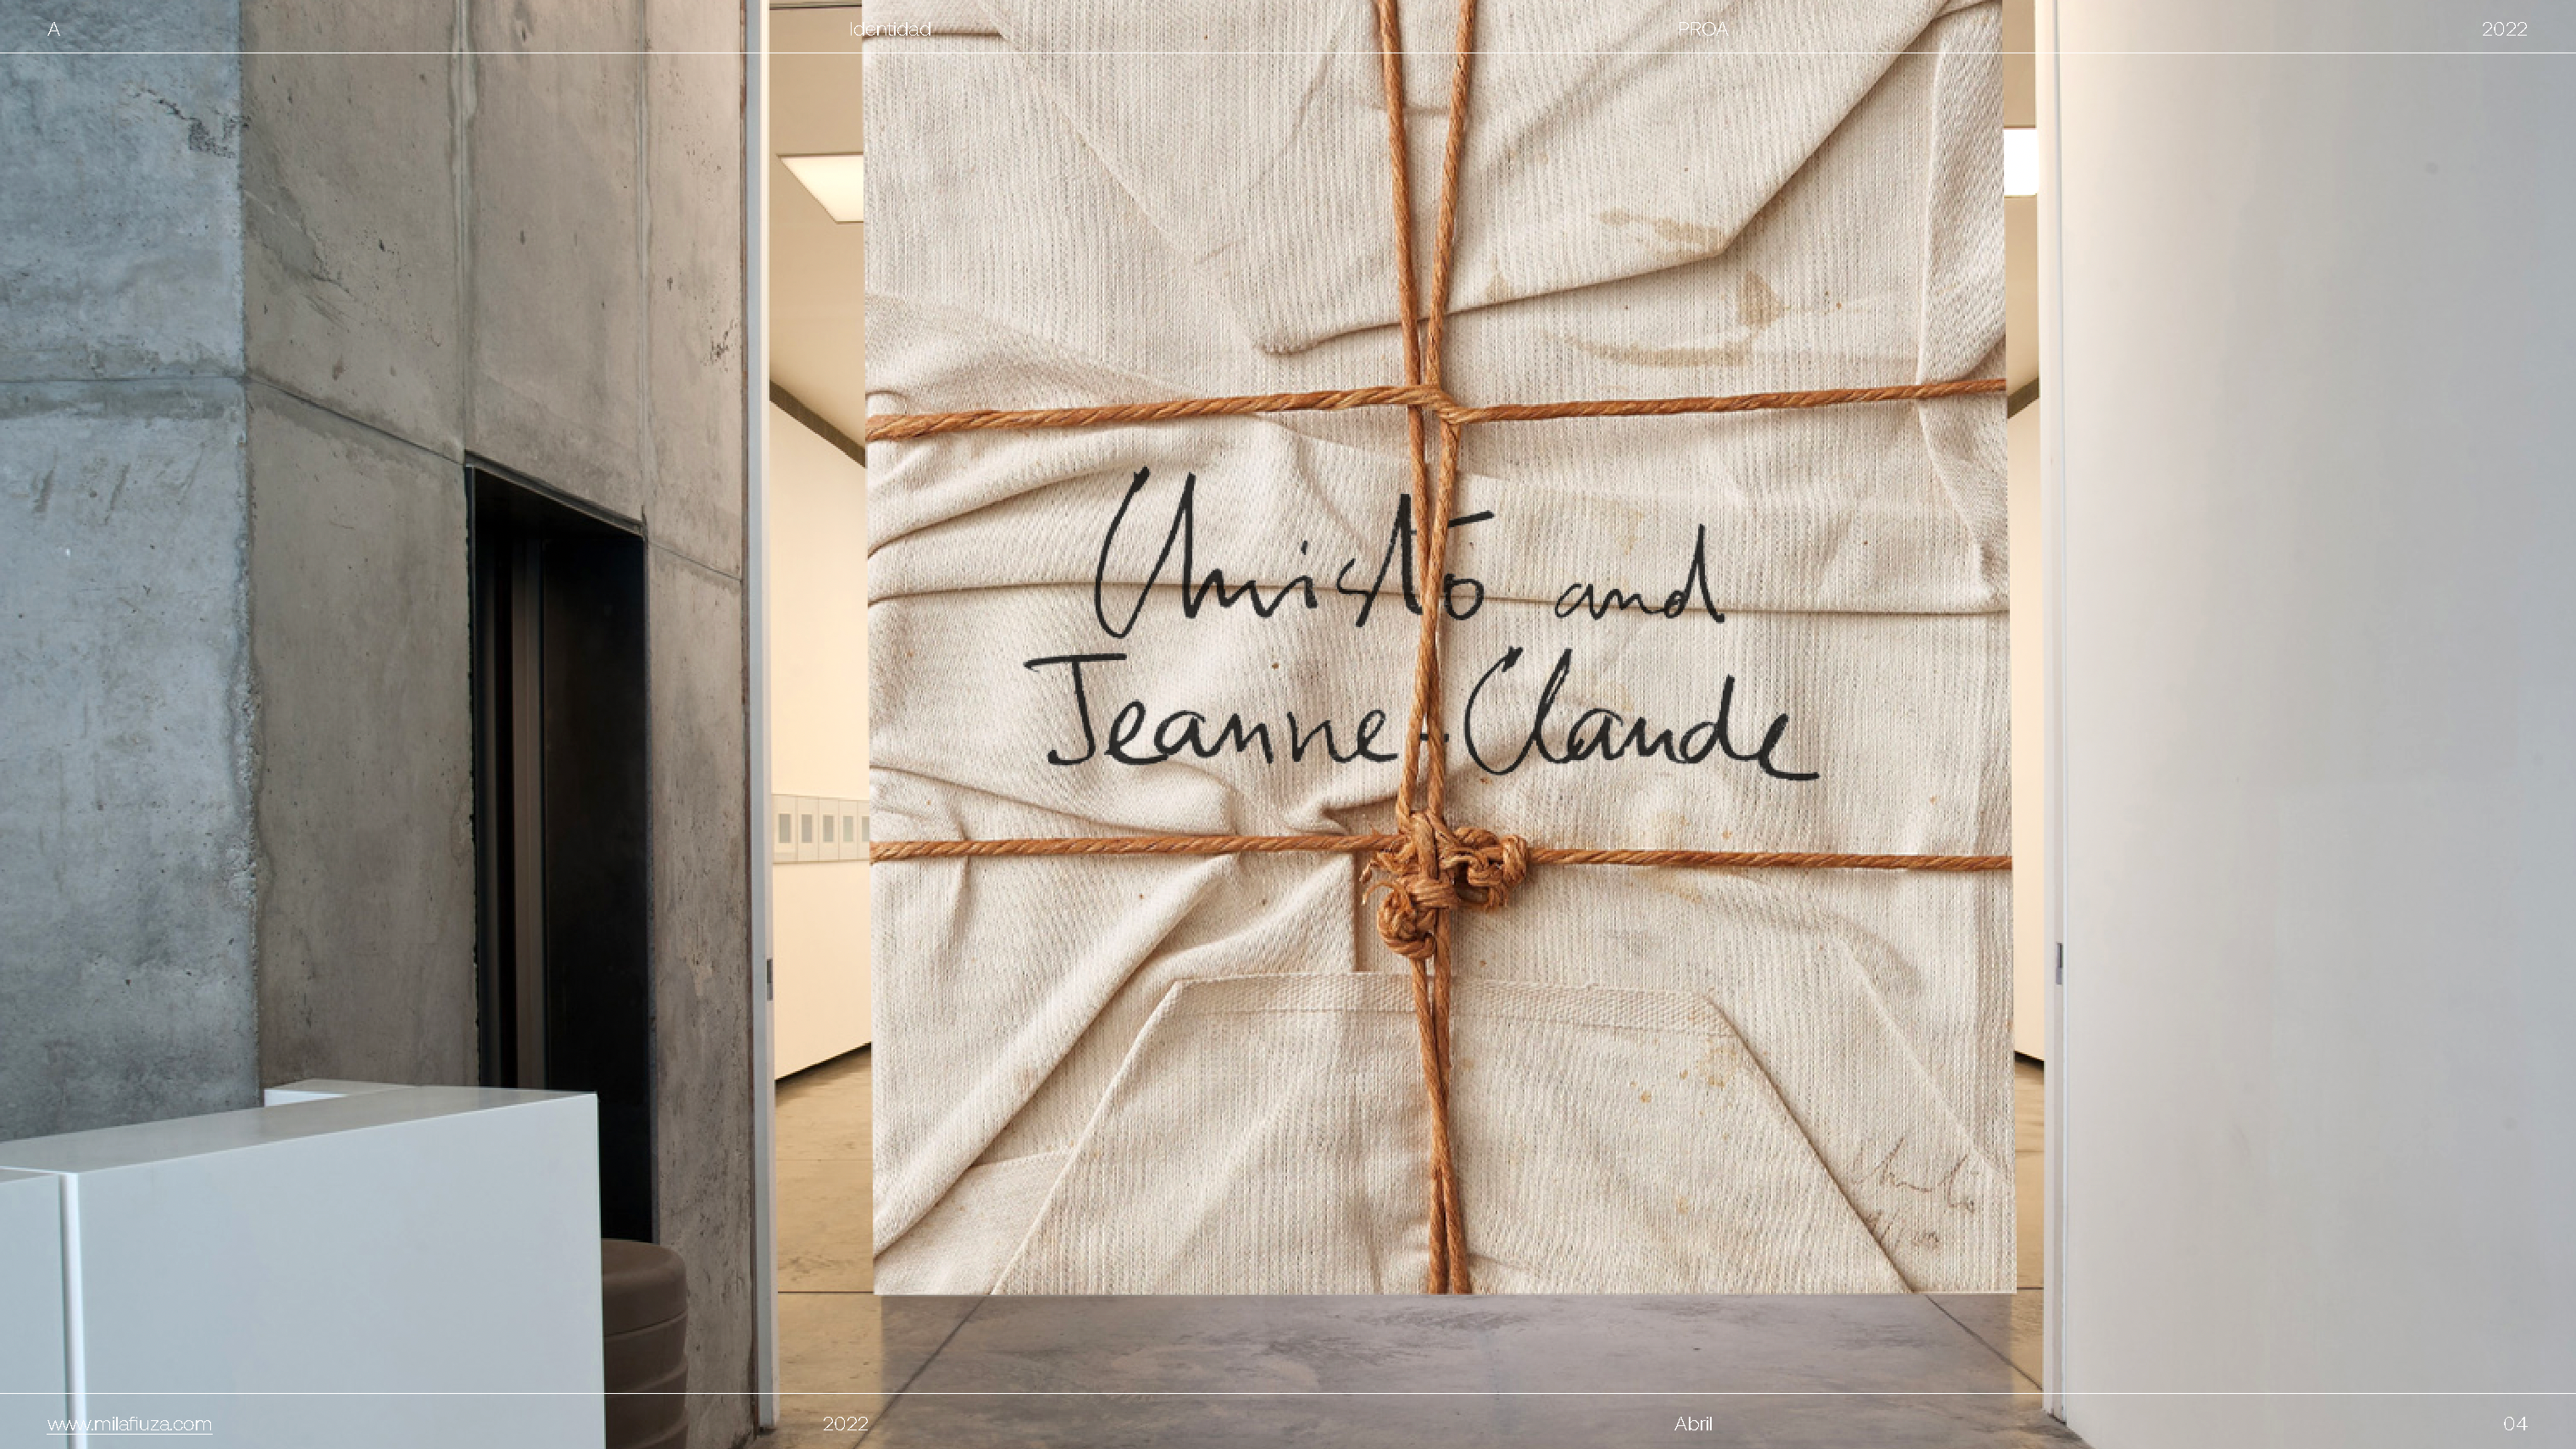 A Identidad PROA 2022
Christo and
Jeanne-Claude
www.milafiuza.com 2022 Abril 04